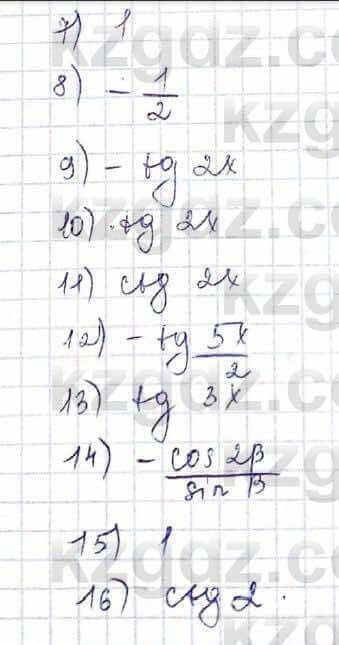 7) 1
8) - 1/2
9) - tg 2x
10) tg 2x
11) ctg 2x
12) - tg 5x/2
13) tg 3x
14) - cos 2β / sin β
15) 1
16) ctg 2.
kzgdz.com